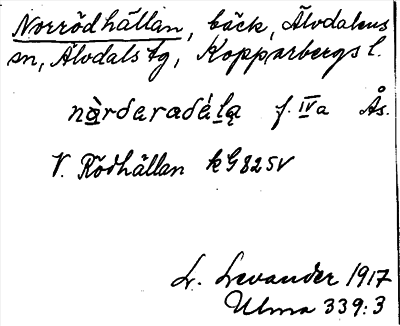 Norrödhällan, bäck, Älvdalens
sn, Älvdals tg, Kopparbergs l.
nàrdaradálą f. IVa Ås.
V. Rödhällan kG825V
L. Levander 1917
Ulma 339:3